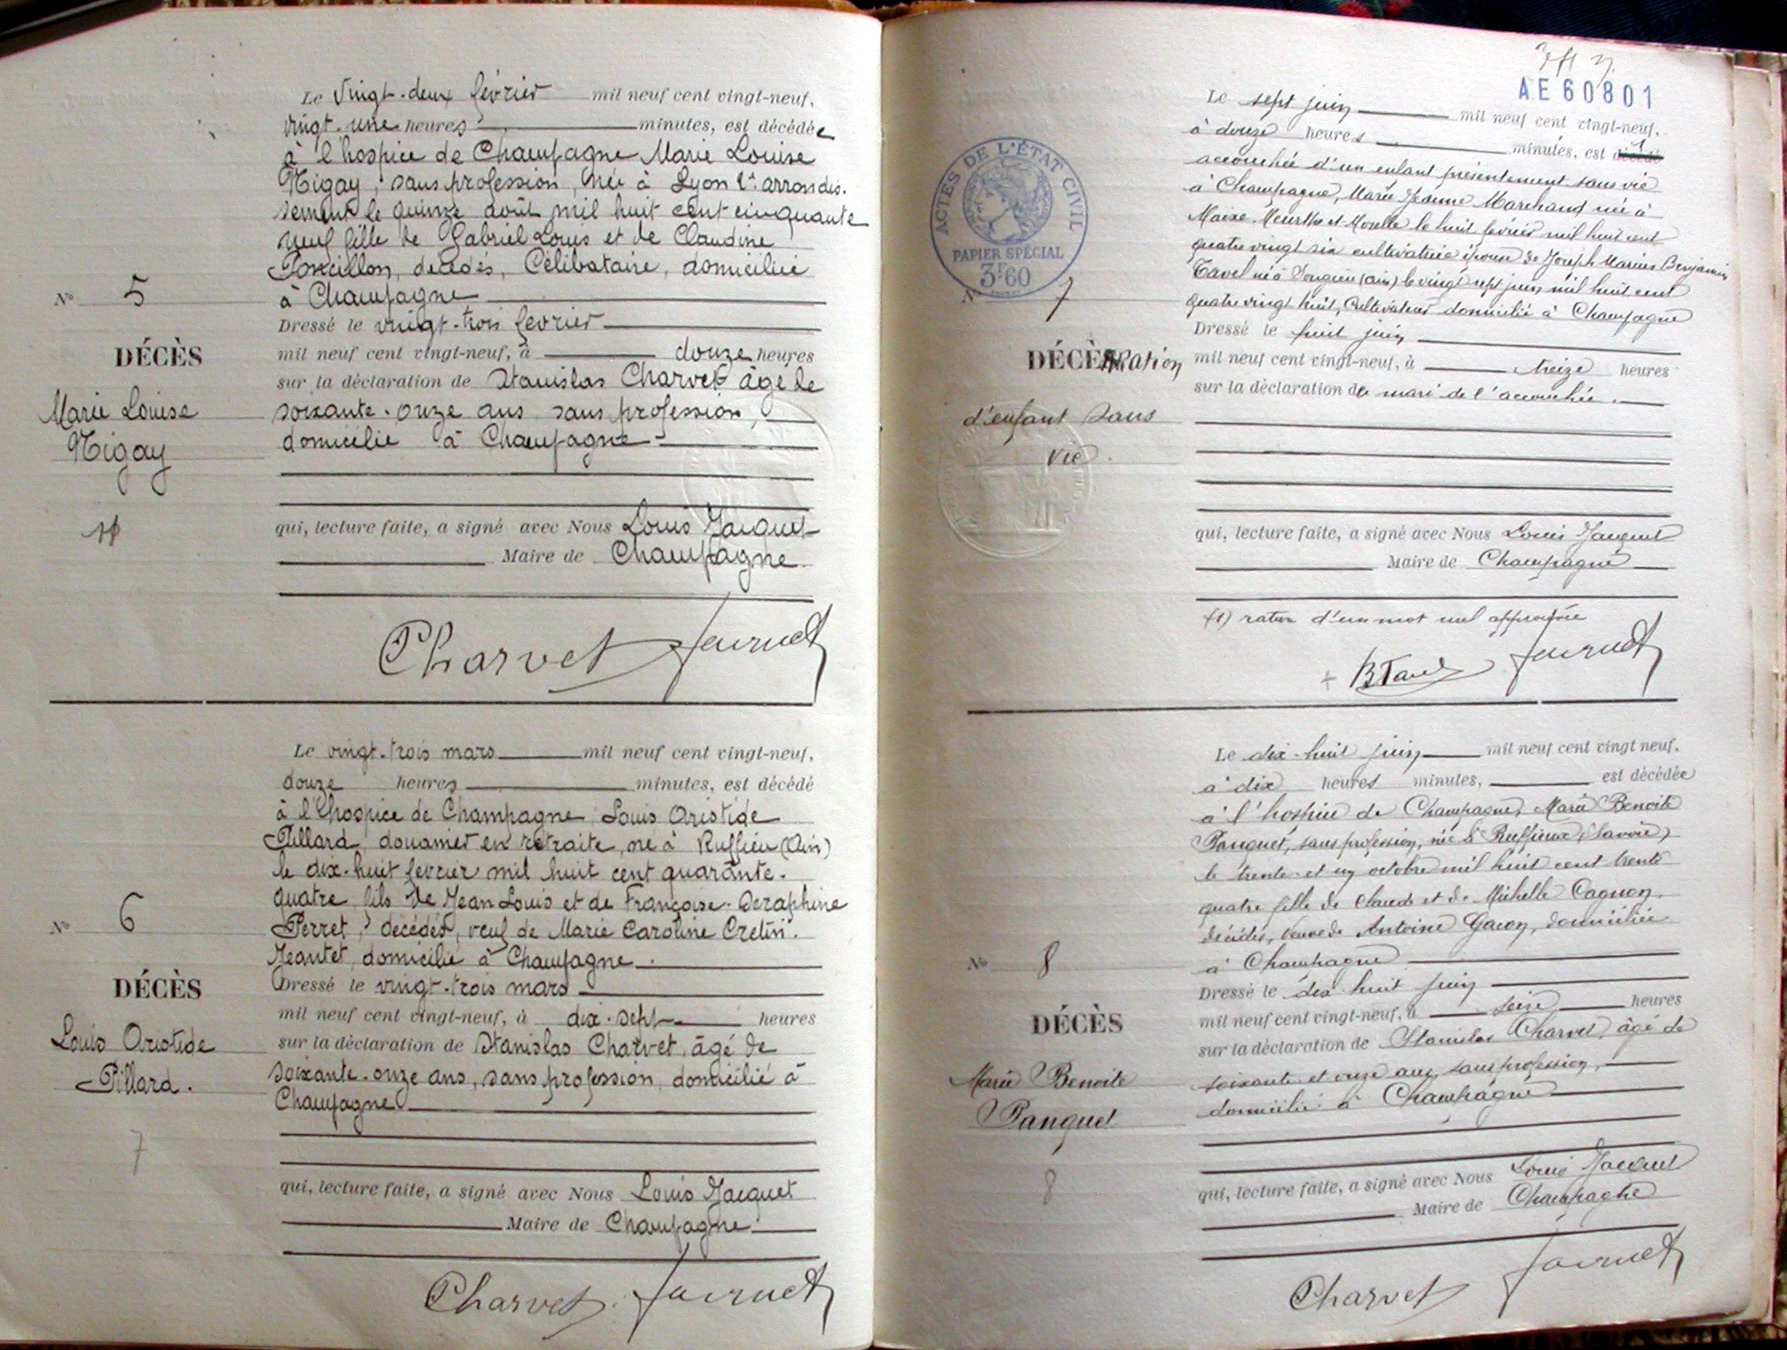 Le vingt-deux février mil neuf cent vingt-neuf,
vingt-une heures minutes, est décédée
à l'hospice de Champagne Marie Louise
Nigay, sans profession, née à Lyon 2e arrondis-
sement le quinze août mil huit cent cinquante
neuf fille de Gabriel Louis et de Claudine
Poncillon, décédés, Célibataire, domiciliée
à Champagne
N° 5
Dressé le vingt-trois février
DÉCÈS
mil neuf cent vingt-neuf, à douze heures
sur la déclaration de Stanislas Charvet âgé de
Marie Louise
soixante-onze ans sans profession,
Nigay
domicilié à Champagne
qui, lecture faite, a signé avec Nous Louis Jacquet
Maire de Champagne
Charvet Jacquet
Le vingt-trois mars mil neuf cent vingt-neuf,
douze heures minutes, est décédé
à l'hospice de Champagne Louis Aristide
Pillard, douanier en retraite, né à Ruffieu (Ain)
le dix-huit février mil huit cent quarante-
quatre fils de Jean Louis et de Françoise-Séraphine
N° 6
Perret, décédés, veuf de Marie Caroline Cretin-
Jeantet, domicilié à Champagne
DÉCÈS
Dressé le vingt-trois mars
mil neuf cent vingt-neuf, à dix-sept heures
Louis Aristide
sur la déclaration de Stanislas Charvet, âgé de
Pillard.
soixante-onze ans, sans profession, domicilié à
Champagne
7
qui, lecture faite, a signé avec Nous Louis Jacquet
Maire de Champagne
Charvet Jacquet
AE 60801
ACTES DE L'ÉTAT CIVIL
PAPIER SPÉCIAL
3F60
Le sept juin mil neuf cent vingt-neuf,
à douze heures minutes, est décédé
accouchée d'un enfant présentement sans vie
à Champagne, Marie Jeanne Marchand née à
Maixe Meurthe et Moselle le huit février mil huit cent
quatre vingt six cultivatrice épouse de Joseph Marius Benjamin
Tavel né à Songieu (ain) le vingt sept juin mil huit cent
N° 7
quatre vingt huit, Cultivateur domicilié à Champagne
Dressé le huit juin
DÉCÈ
mil neuf cent vingt-neuf, à treize heures
sur la déclaration du mari de l'accouchée.
d'enfant sans
vie.
qui, lecture faite, a signé avec Nous Louis Jacquet
Maire de Champagne
(1) rature d'un mot nul approuvée
+ B Tavel Jacquet
Le dix-huit juin mil neuf cent vingt neuf,
à dix heures minutes, est décédée
à l'hospice de Champagne, Marie Benoite
Panguet, sans profession, née à Ruffieux (Savoie)
le trente et un octobre mil huit cent trente
quatre fille de Claude et de Michelle Cagnon,
décédés, veuve de Antoine Gacon, domiciliée
N° 8
à Champagne
Dressé le dix huit juin
DÉCÈS
mil neuf cent vingt-neuf, à seize heures
sur la déclaration de Stanislas Charvet, âgé de
Marie Benoite
soixante et onze ans, sans profession,
Panguet
domicilié à Champagne
8
qui, lecture faite, a signé avec Nous Louis Jacquet
Maire de Champagne
Charvet Jacquet